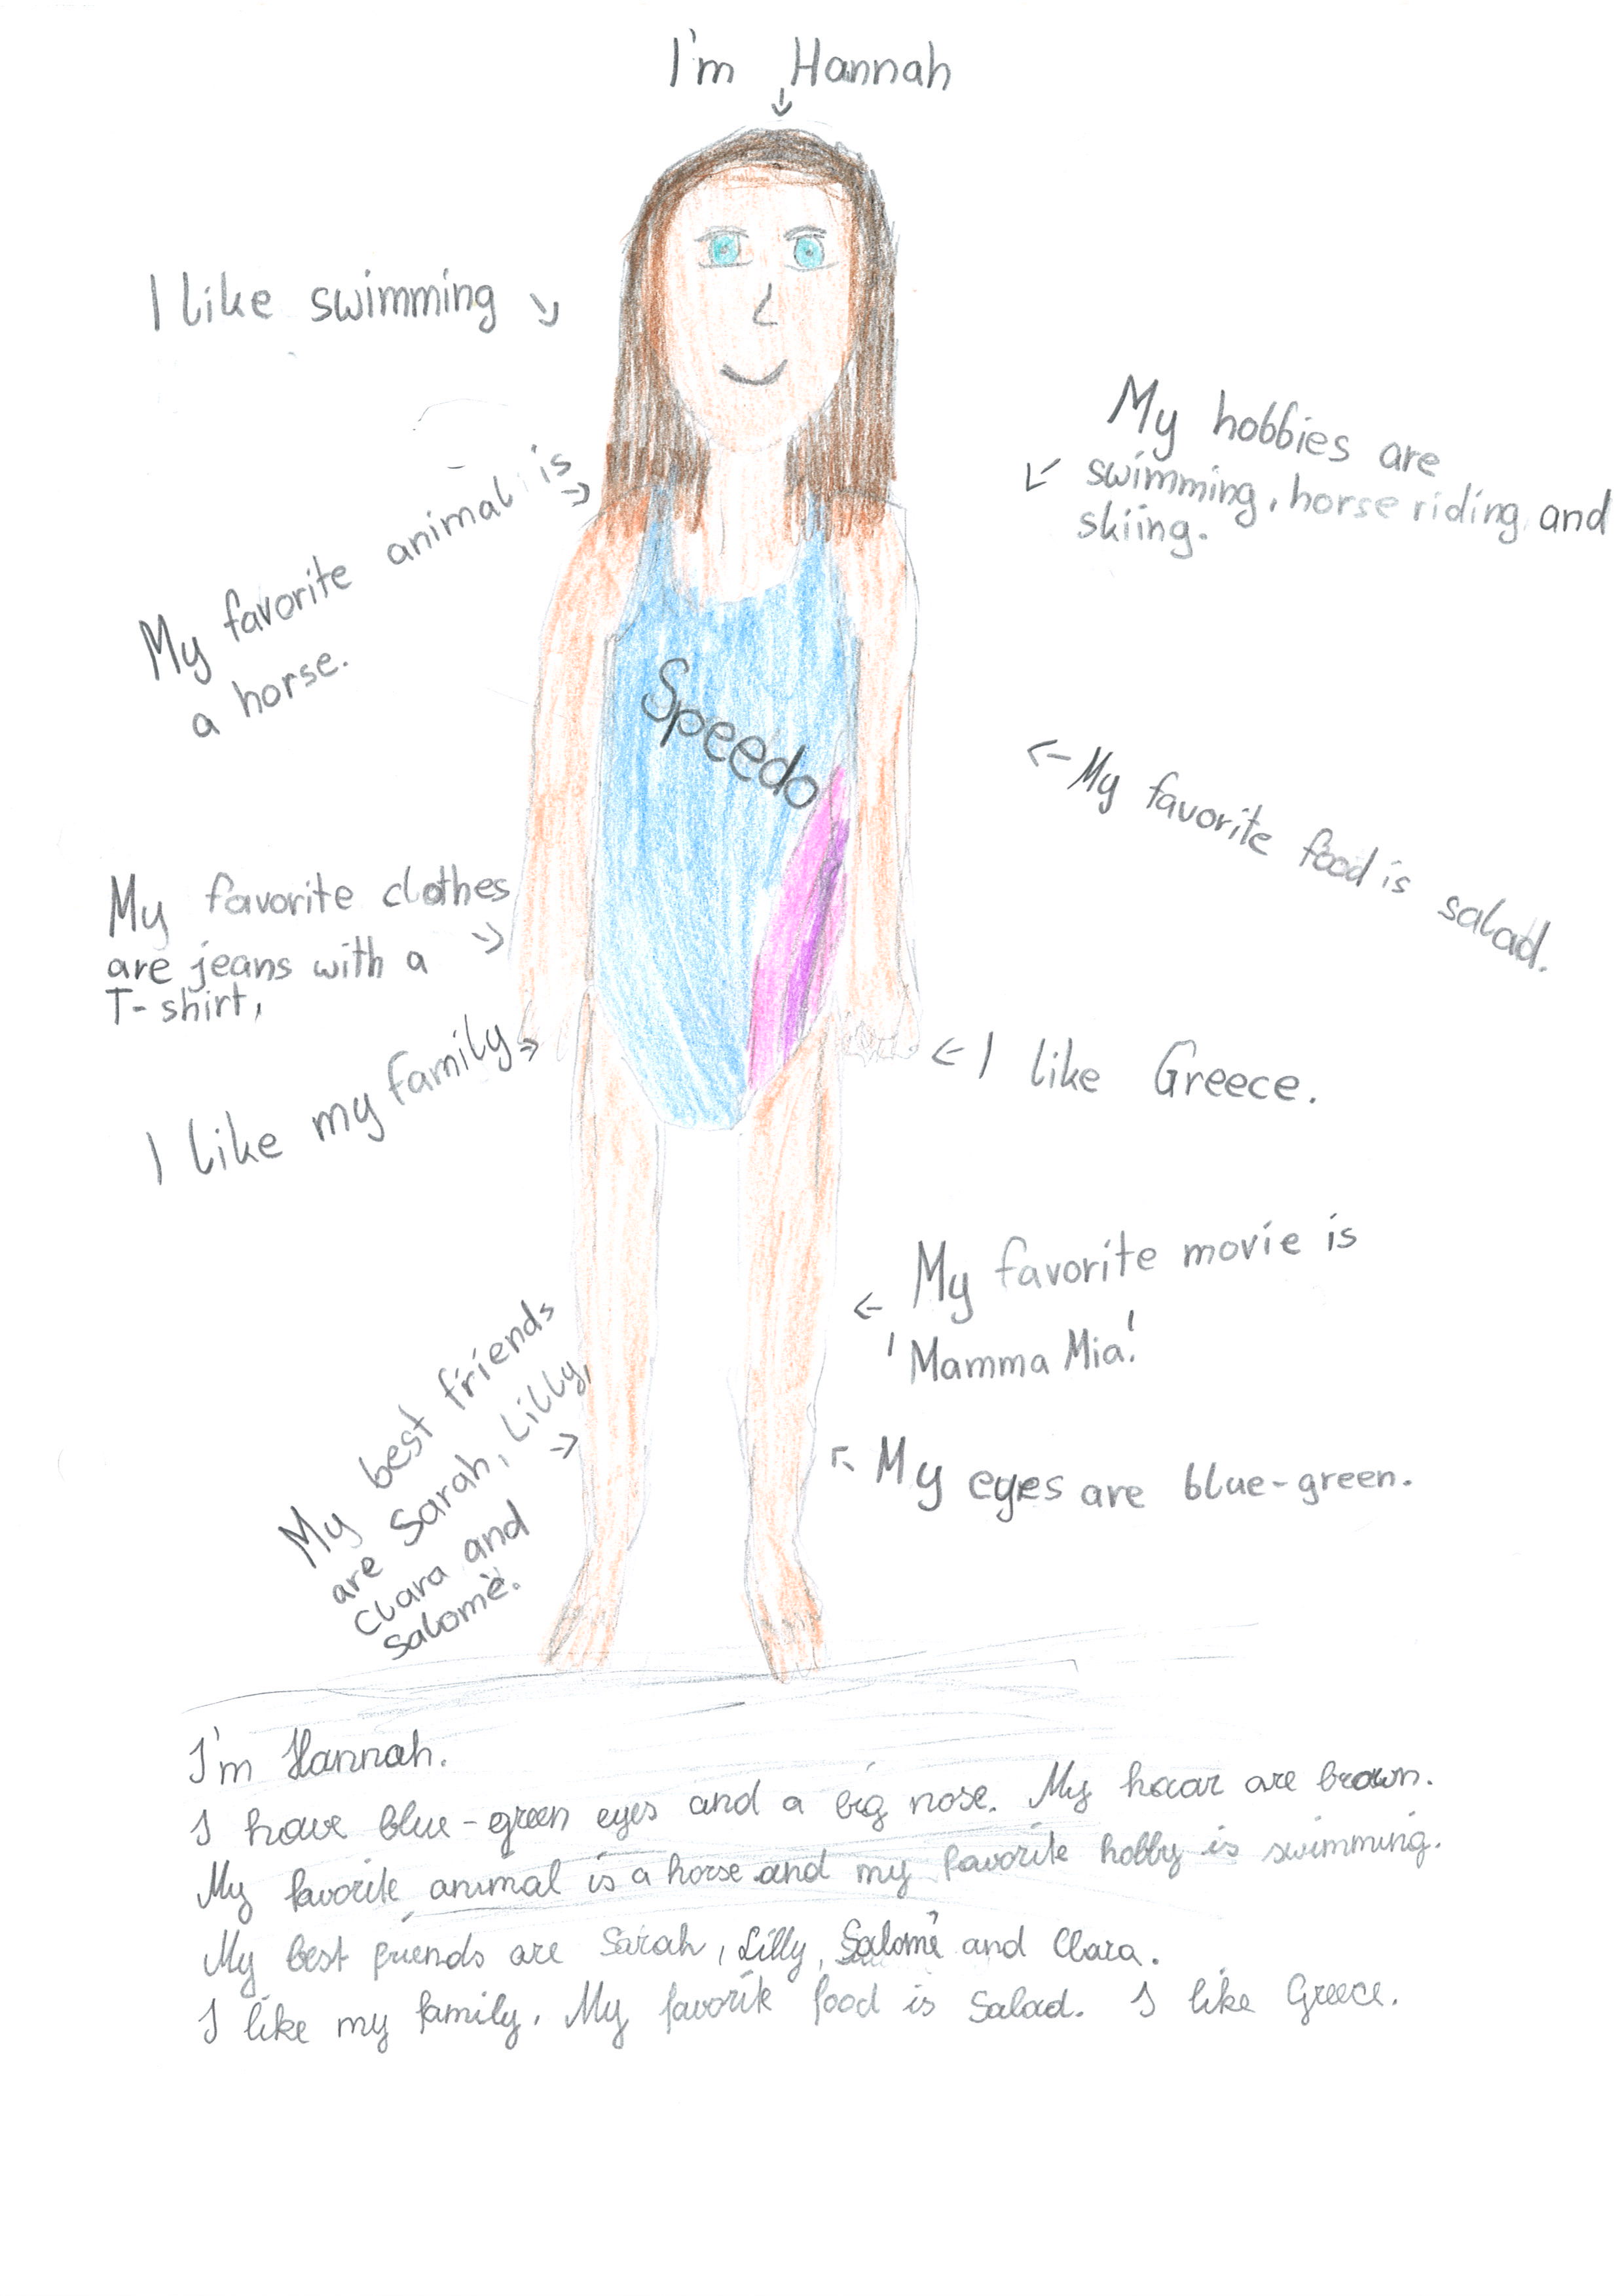 I'm Hannah
I like swimming
My hobbies are
swimming, horse riding and
skiing.
My favorite animal is
a horse.
Speedo
My favorite food is salad.
My favorite clothes
are jeans with a
T-shirt,
I like my family
I like Greece.
My favorite movie is
'Mamma Mia!'
My best friends
are Sarah, Lilly,
Clara and
Salomè.
My eyes are blue-green.
I'm Hannah.
I have blue-green eyes and a big nose. My haar are brown.
My favorite animal is a horse and my favorite hobby is swimming.
My best friends are Sarah, Lilly, Salomè and Clara.
I like my family. My favorite food is Salad. I like Greece.